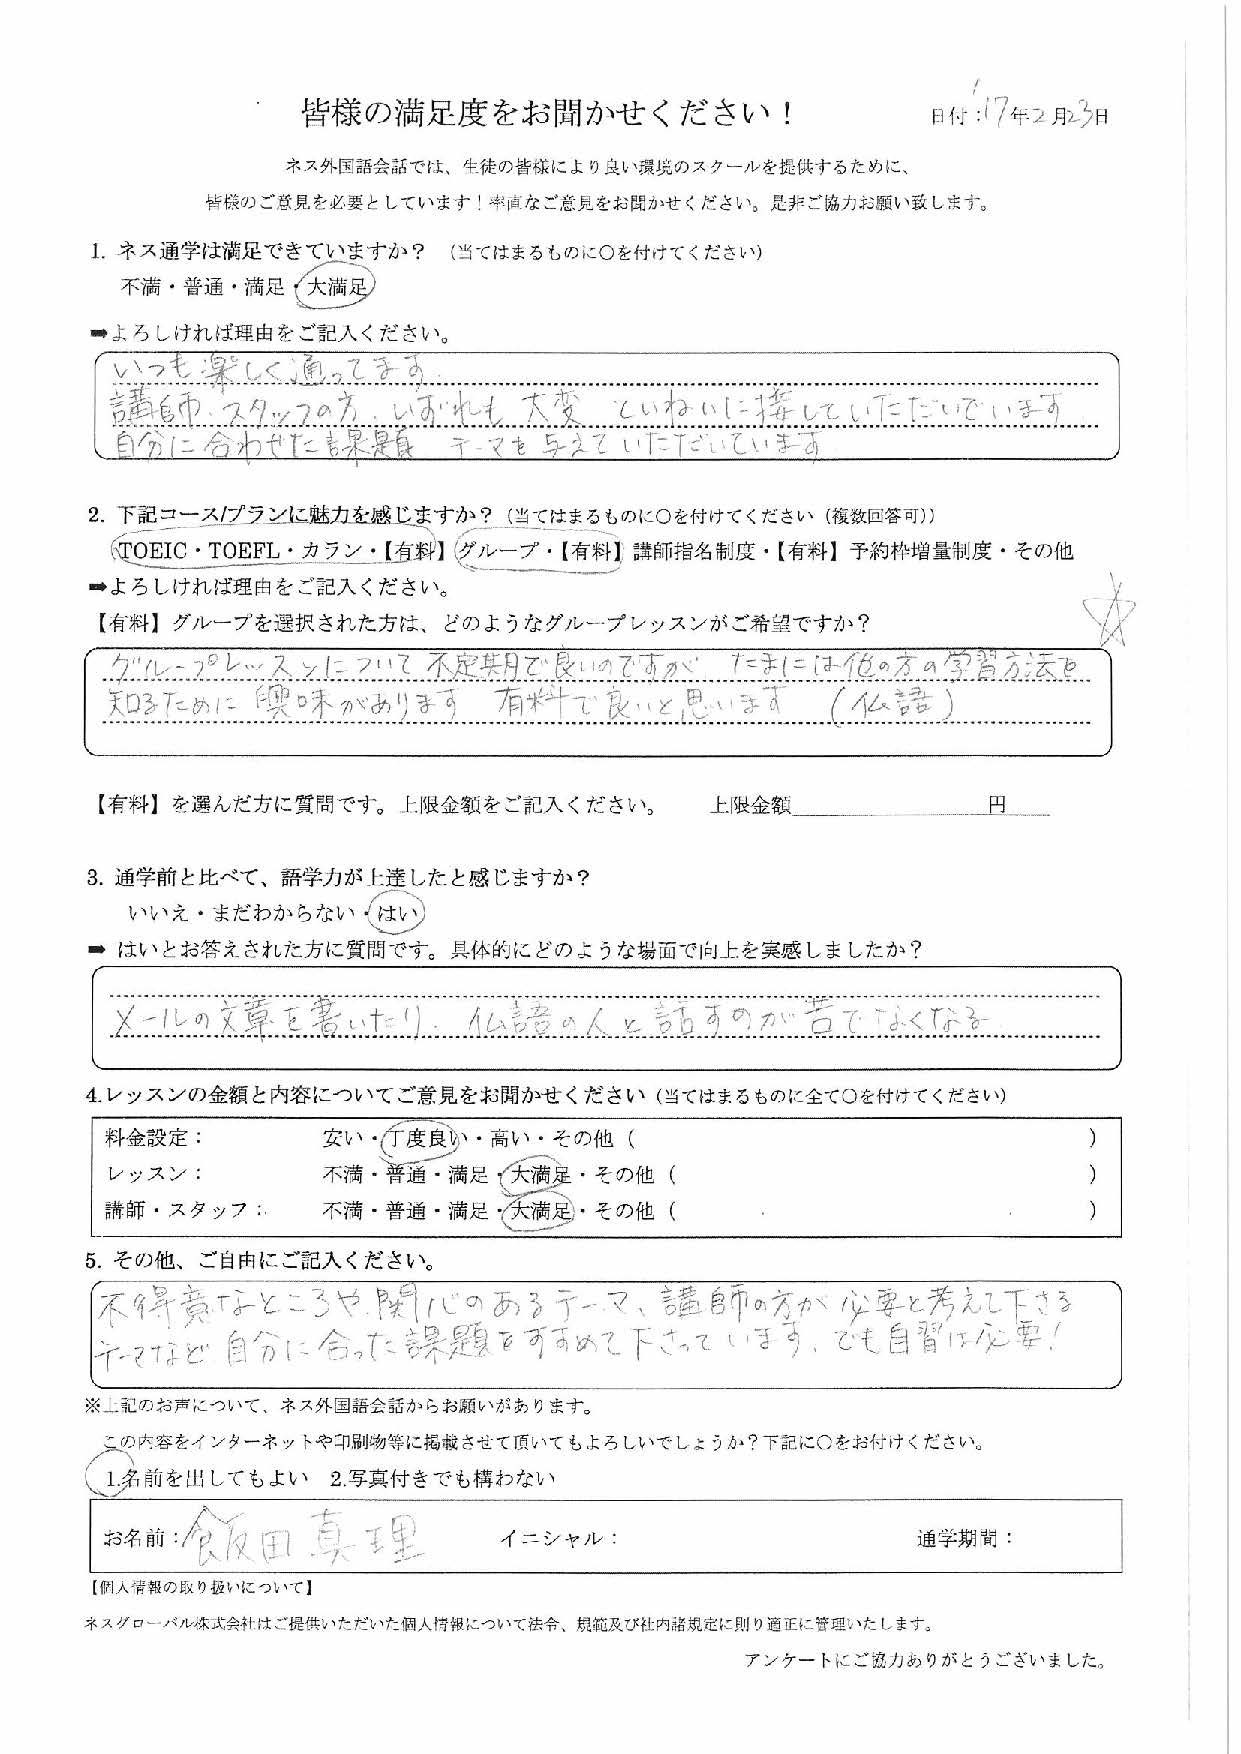 皆様の満足度をお聞かせください！
日付：'17年2月23日
ネス外国語会話では、生徒の皆様により良い環境のスクールを提供するために、
皆様のご意見を必要としています！率直なご意見をお聞かせください。是非ご協力お願い致します。
1. ネス通学は満足できていますか？ （当てはまるものに〇を付けてください）
不満・普通・満足・大満足
➡よろしければ理由をご記入ください。
いつも楽しく通ってます.
講師、スタッフの方、いずれも 大変 ていねいに接していただいでいます
自分に合わせた課題 テーマを与えていただいています
2. 下記コース/プランに魅力を感じますか？（当てはまるものに〇を付けてください（複数回答可））
TOEIC・TOEFL・カラン・【有料】グループ・【有料】講師指名制度・【有料】予約枠増量制度・その他
➡よろしければ理由をご記入ください。
【有料】グループを選択された方は、どのようなグループレッスンがご希望ですか？
グループレッスンについて 不定期で良いのですが たまには他の方の学習方法を
知るために 興味があります 有料で良いと思います （仏語）
【有料】を選んだ方に質問です。上限金額をご記入ください。 上限金額 円
3. 通学前と比べて、語学力が上達したと感じますか？
いいえ・まだわからない・はい
➡ はいとお答えされた方に質問です。具体的にどのような場面で向上を実感しましたか？
メールの文章を書いたり、仏語の人と話すのが苦でなくなる
4.レッスンの金額と内容についてご意見をお聞かせください（当てはまるものに全て〇を付けてください）
料金設定： 安い・丁度良い・高い・その他（ ）
レッスン： 不満・普通・満足・大満足・その他（ ）
講師・スタッフ： 不満・普通・満足・大満足・その他（ ）
5. その他、ご自由にご記入ください。
不得意なところや、関心のあるテーマ、講師の方が 必要と考えて下さる
テーマなど 自分に合った課題をすすめて下さっています. でも自習は必要！
※上記のお声について、ネス外国語会話からお願いがあります。
この内容をインターネットや印刷物等に掲載させて頂いてもよろしいでしょうか？下記に〇をお付けください。
1.名前を出してもよい 2.写真付きでも構わない
お名前：飯田 真理 イニシャル： 通学期間：
【個人情報の取り扱いについて】
ネスグローバル株式会社はご提供いただいた個人情報について法令、規範及び社内諸規定に則り適正に管理いたします。
アンケートにご協力ありがとうございました。